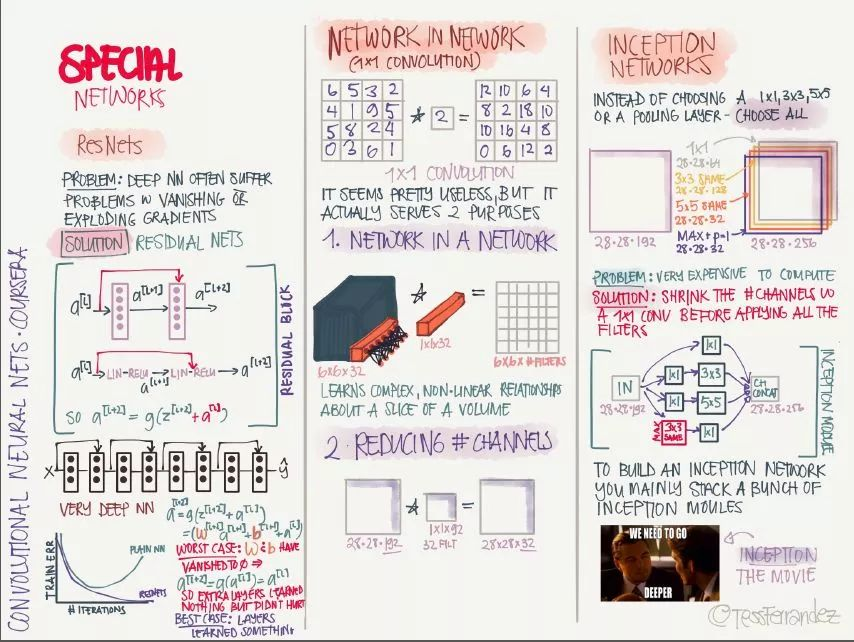 CONVOLUTIONAL NEURAL NETS · COURSERA
SPECIAL
NETWORKS
ResNets
PROBLEM: DEEP NN OFTEN SUFFER
PROBLEMS W VANISHING OR
EXPLODING GRADIENTS
SOLUTION RESIDUAL NETS
a[l] a[l+1] a[l+2]
a[l] LIN-RELU LIN-RELU a[l+2]
a[l+1]
SO a[l+2] = g(z[l+2] + a[l])
RESIDUAL BLOCK
X ŷ
VERY DEEP NN
a[l+2] = g(z[l+2] + a[l])
= (W[l+2] a[l+1] + b[l+2] + a[l])
WORST CASE: W & b HAVE
VANISHED TO 0 ⇒
a[l+2] = g(a[l]) = a[l]
SO EXTRA LAYERS LEARNED
NOTHING BUT DIDN'T HURT
BEST CASE: LAYERS
LEARNED SOMETHING
TRAIN ERR
PLAIN NN
RESNETS
# ITERATIONS
NETWORK IN NETWORK
(1x1 CONVOLUTION)
6 5 3 2
4 1 9 5
5 8 2 4
0 3 6 1
* 2 =
12 10 6 4
8 2 18 10
10 16 4 8
0 6 12 2
1x1 CONVOLUTION
IT SEEMS PRETTY USELESS, BUT IT
ACTUALLY SERVES 2 PURPOSES
1. NETWORK IN A NETWORK
* =
6x6x32
1x1x32
6x6x #FILTERS
LEARNS COMPLEX, NON-LINEAR RELATIONSHIPS
ABOUT A SLICE OF A VOLUME
2. REDUCING # CHANNELS
* =
28·28·192
1x1x192
32 FILT
28x28x32
INCEPTION
NETWORKS
INSTEAD OF CHOOSING A 1x1, 3x3, 5x5
OR A POOLING LAYER - CHOOSE ALL
1x1
28·28·64
3x3 SAME
28·28·128
5x5 SAME
28·28·32
MAX + p=1
28·28·32
28·28·192
28·28·256
PROBLEM: VERY EXPENSIVE TO COMPUTE
SOLUTION: SHRINK THE # CHANNELS W
A 1x1 CONV BEFORE APPLYING ALL THE
FILTERS
IN
28·28·192
1x1
1x1 3x3
1x1 5x5
MAX 3x3 SAME 1x1
CH CONCAT
28·28·256
INCEPTION MODULE
TO BUILD AN INCEPTION NETWORK
YOU MAINLY STACK A BUNCH OF
INCEPTION MOULES
WE NEED TO GO
DEEPER
INCEPTION
THE MOVIE
@TessFerrandez